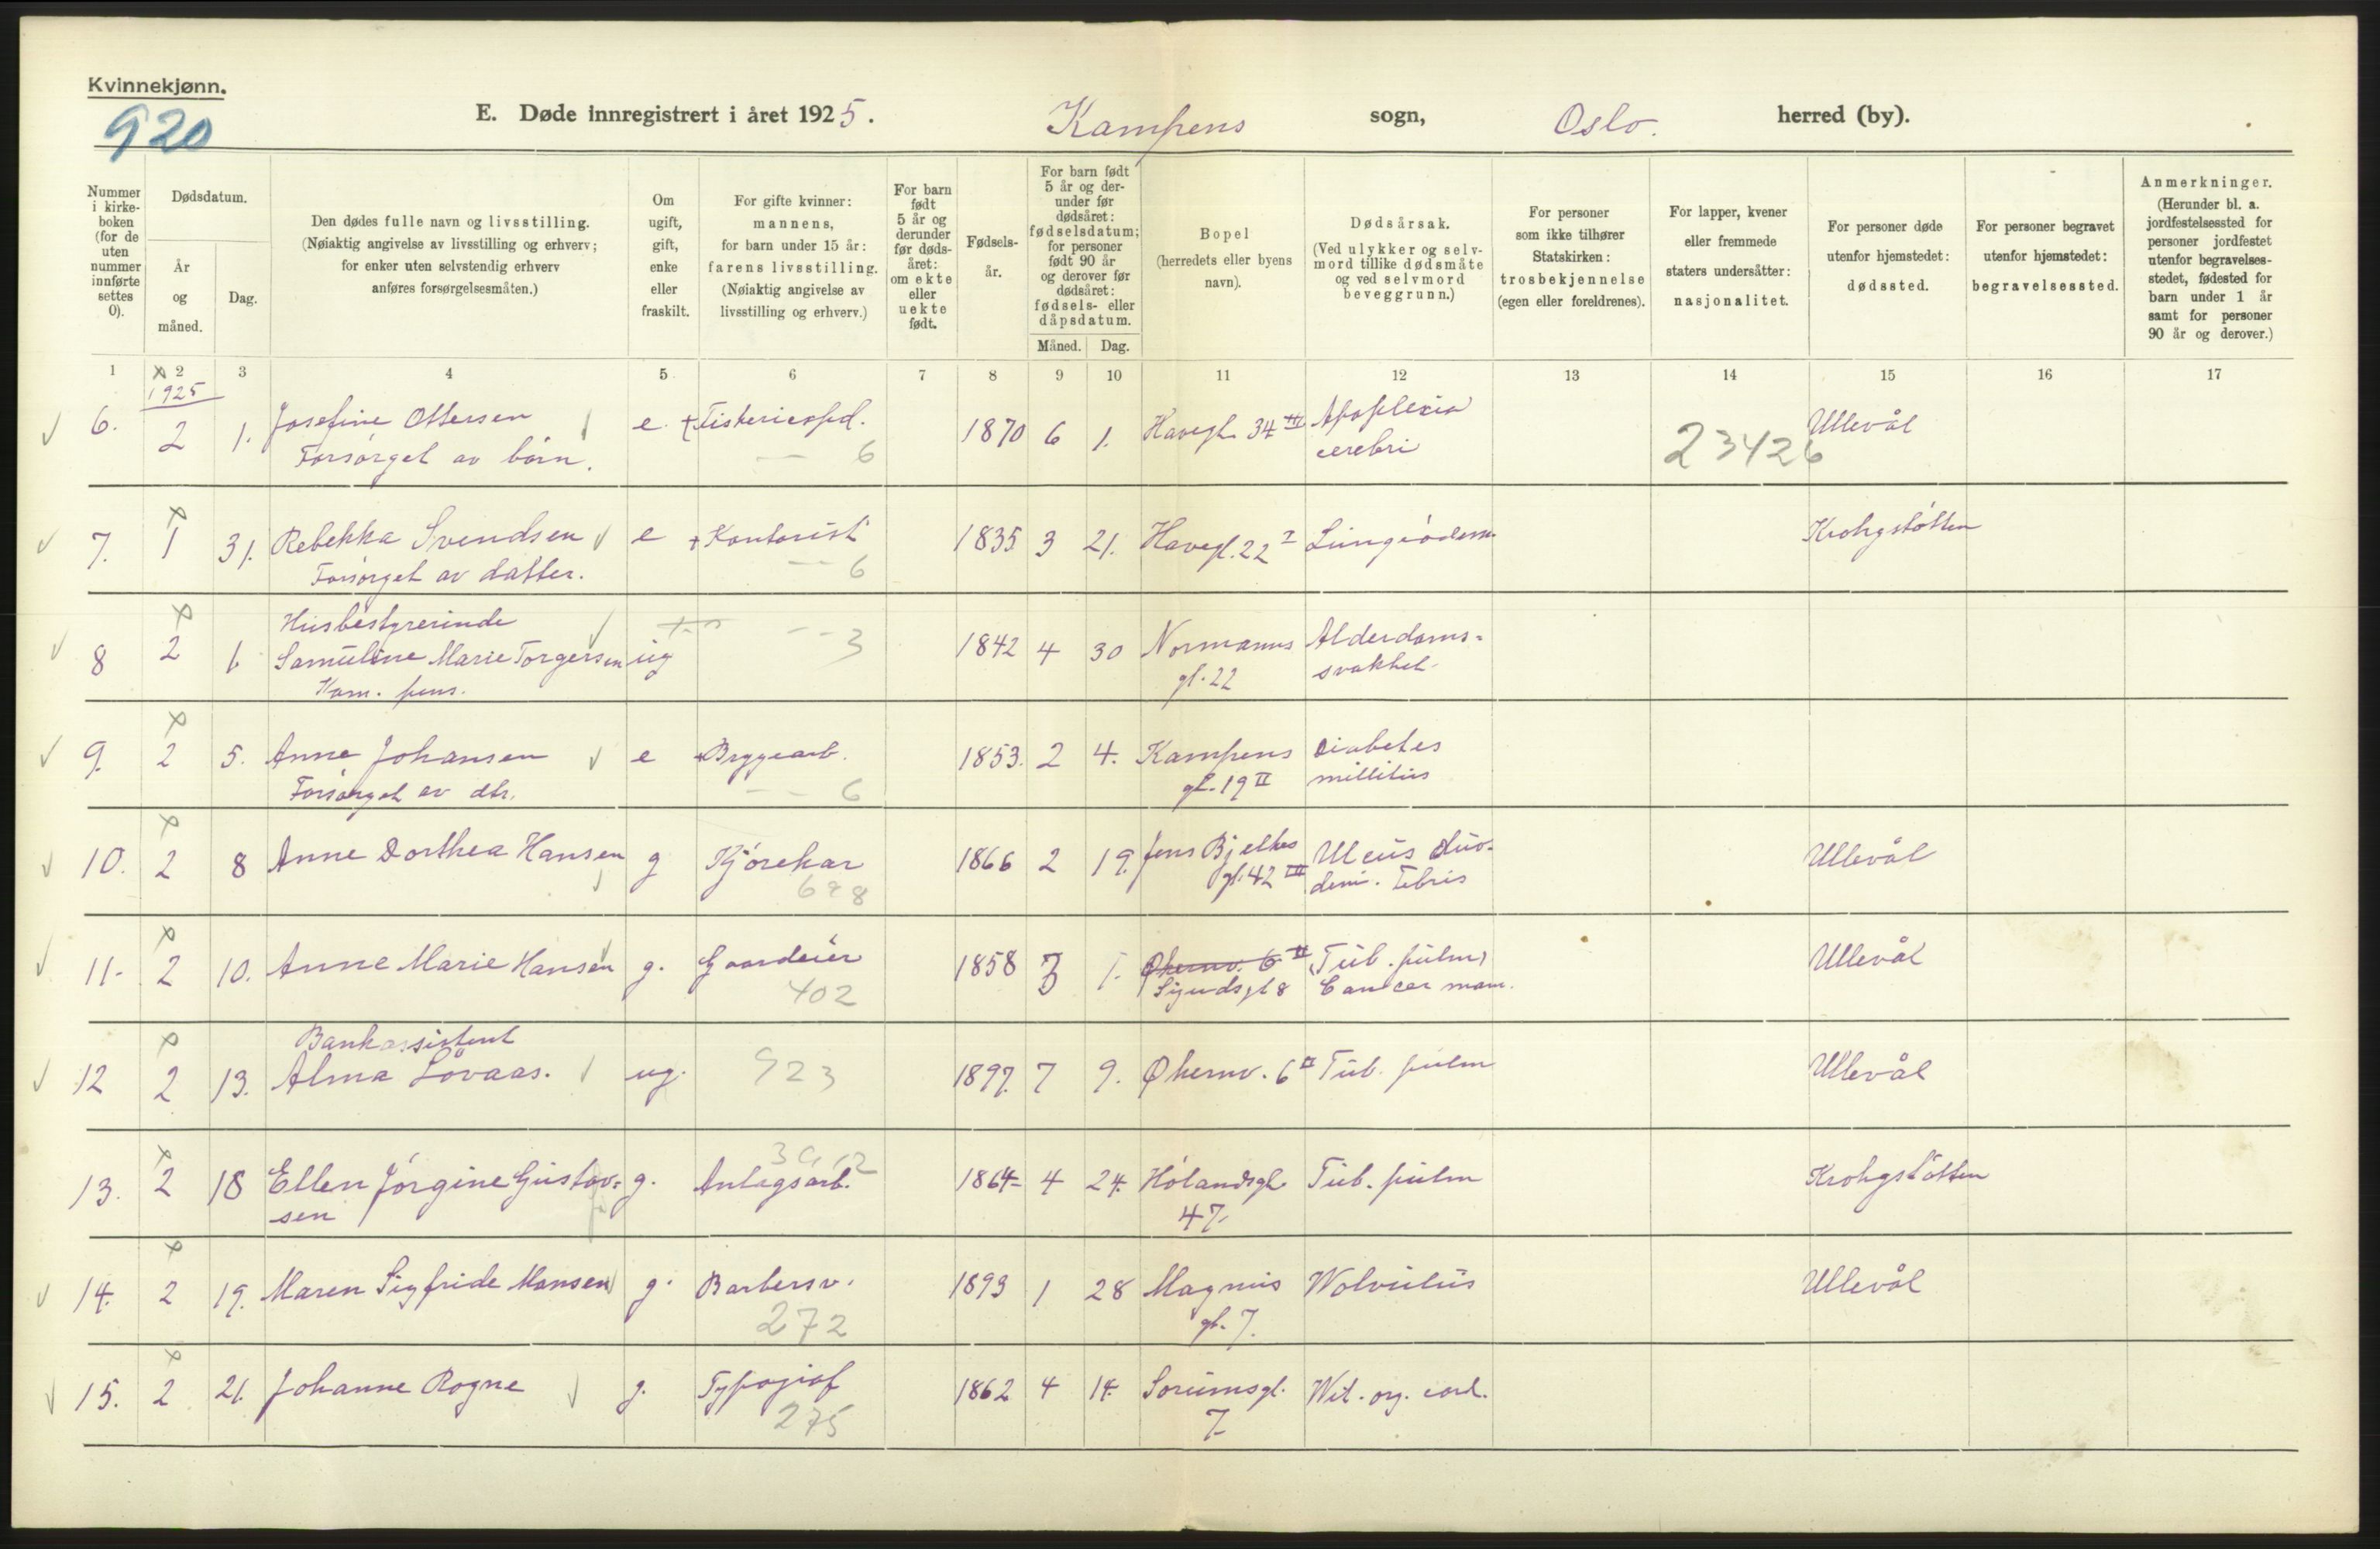 Kvinnekjønn.
920
E. Døde innregistrert i året 1925.
Kampens sogn,
Oslo. herred (by).
Nummer i kirkeboken (for de uten nummer innførte settes 0).
Dødsdatum.
År og måned.
Dag.
Den dødes fulle navn og livsstilling.
(Nøiaktig angivelse av livsstilling og erhverv; for enker uten selvstendig erhverv anføres forsørgelsesmåten.)
Om ugift, gift, enke eller fraskilt.
For gifte kvinner: mannens, for barn under 15 år: farens livsstilling. (Nøiaktig angivelse av livsstilling og erhverv.)
For barn født 5 år og derunder før dødsåret: om ekte eller uekte født.
Fødselsår.
For barn født 5 år og derunder før dødsåret: fødselsdatum; for personer født 90 år og derover før dødsåret: fødsels- eller dåpsdatum.
Måned. Dag.
Bopel (herredets eller byens navn).
Dødsårsak.
(Ved ulykker og selvmord tillike dødsmåte og ved selvmord beveggrunn.)
For personer som ikke tilhører Statskirken: trosbekjennelse (egen eller foreldrenes).
For lapper, kvener eller fremmede staters undersåtter: nasjonalitet.
For personer døde utenfor hjemstedet: dødssted.
For personer begravet utenfor hjemstedet: begravelsessted.
Anmerkninger.
(Herunder bl. a. jordfestelsessted for personer jordfestet utenfor begravelsesstedet, fødested for barn under 1 år samt for personer 90 år og derover.)
1 2 3 4 5 6 7 8 9 10 11 12 13 14 15 16 17
1925
6. 2 1. Josefine Ottersen e. Fiskeriexped. 1870 6 1. Havegt. 34 III Apoplexia Ullevål
Forsørget av børn. 6 cerebri 23426
7. 1 31. Rebekka Svendsen e + Kontorist 1835 3 21. Havegt. 22 I Lungeödem Krohgstøtten
Forsørget av datter. 6
Husbestyrerinde
8 2 1 Samuline Marie Torgersen ug 3 1842 4 30 Normanns Alderdoms-
Kom. pens. gt. 22 svakhet
9. 2 5. Anne Johansen e Bryggearb. 1853. 2 4. Kampens Diabetes
Forsørget av dtr. 6 gt. 19 II millitus
10. 2 8 Anne Dorthea Hansen g Kjørekar 1866 2 19. Jens Bjelkes Ulcus duo- Ullevål
698 gt. 42 III deni.
11. 2 10. Anne Marie Hansen g. Gaardeier 1858 3 1. Økernv. 6 II Tub. pulm Ullevål
402 Sigurdsgt 8 Cancer mam.
Bankassistent
12 2 13. Alma Løvaas. ug. 923 1897. 7 9. Økernv. 6 II Tub. pulm Ullevål
13. 2 18 Ellen Jörgine Gustav- g. Anlegsarb. 1864 4 24. Hølandsgt. Tub. pulm Krohgstøtten
sen 47.
14. 2 19. Maren Sigfride Monsen g. Barbersv. 1893 1 28 Magnus Wolvulus Ullevål
272 gt. 7.
15. 2 21. Johanne Rogne g. Typograf 1862 4 14. Sørumsgt. Wit. org. cord.
275 7.